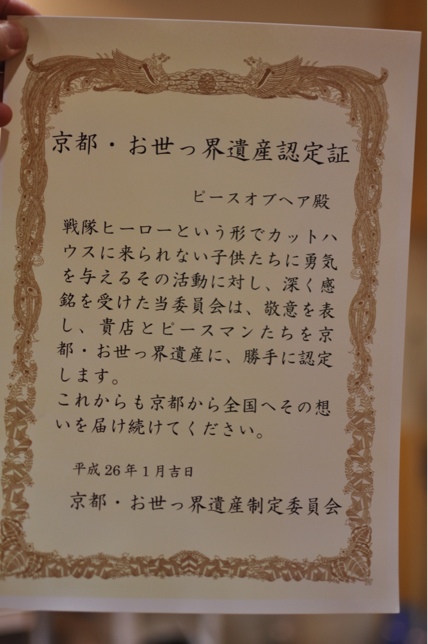 京都・お世っ界遺産認定証
ピースオブヘア殿
戦隊ヒーローという形でカットハ
ウスに来られない子供たちに勇気
を与えるその活動に対し、深く感
銘を受けた当委員会は、敬意を表
し、貴店とピースマンたちを京
都・お世っ界遺産に、勝手に認定
します。
これからも京都から全国へその想
いを届け続けてください。
平成26年1月吉日
京都・お世っ界遺産制定委員会